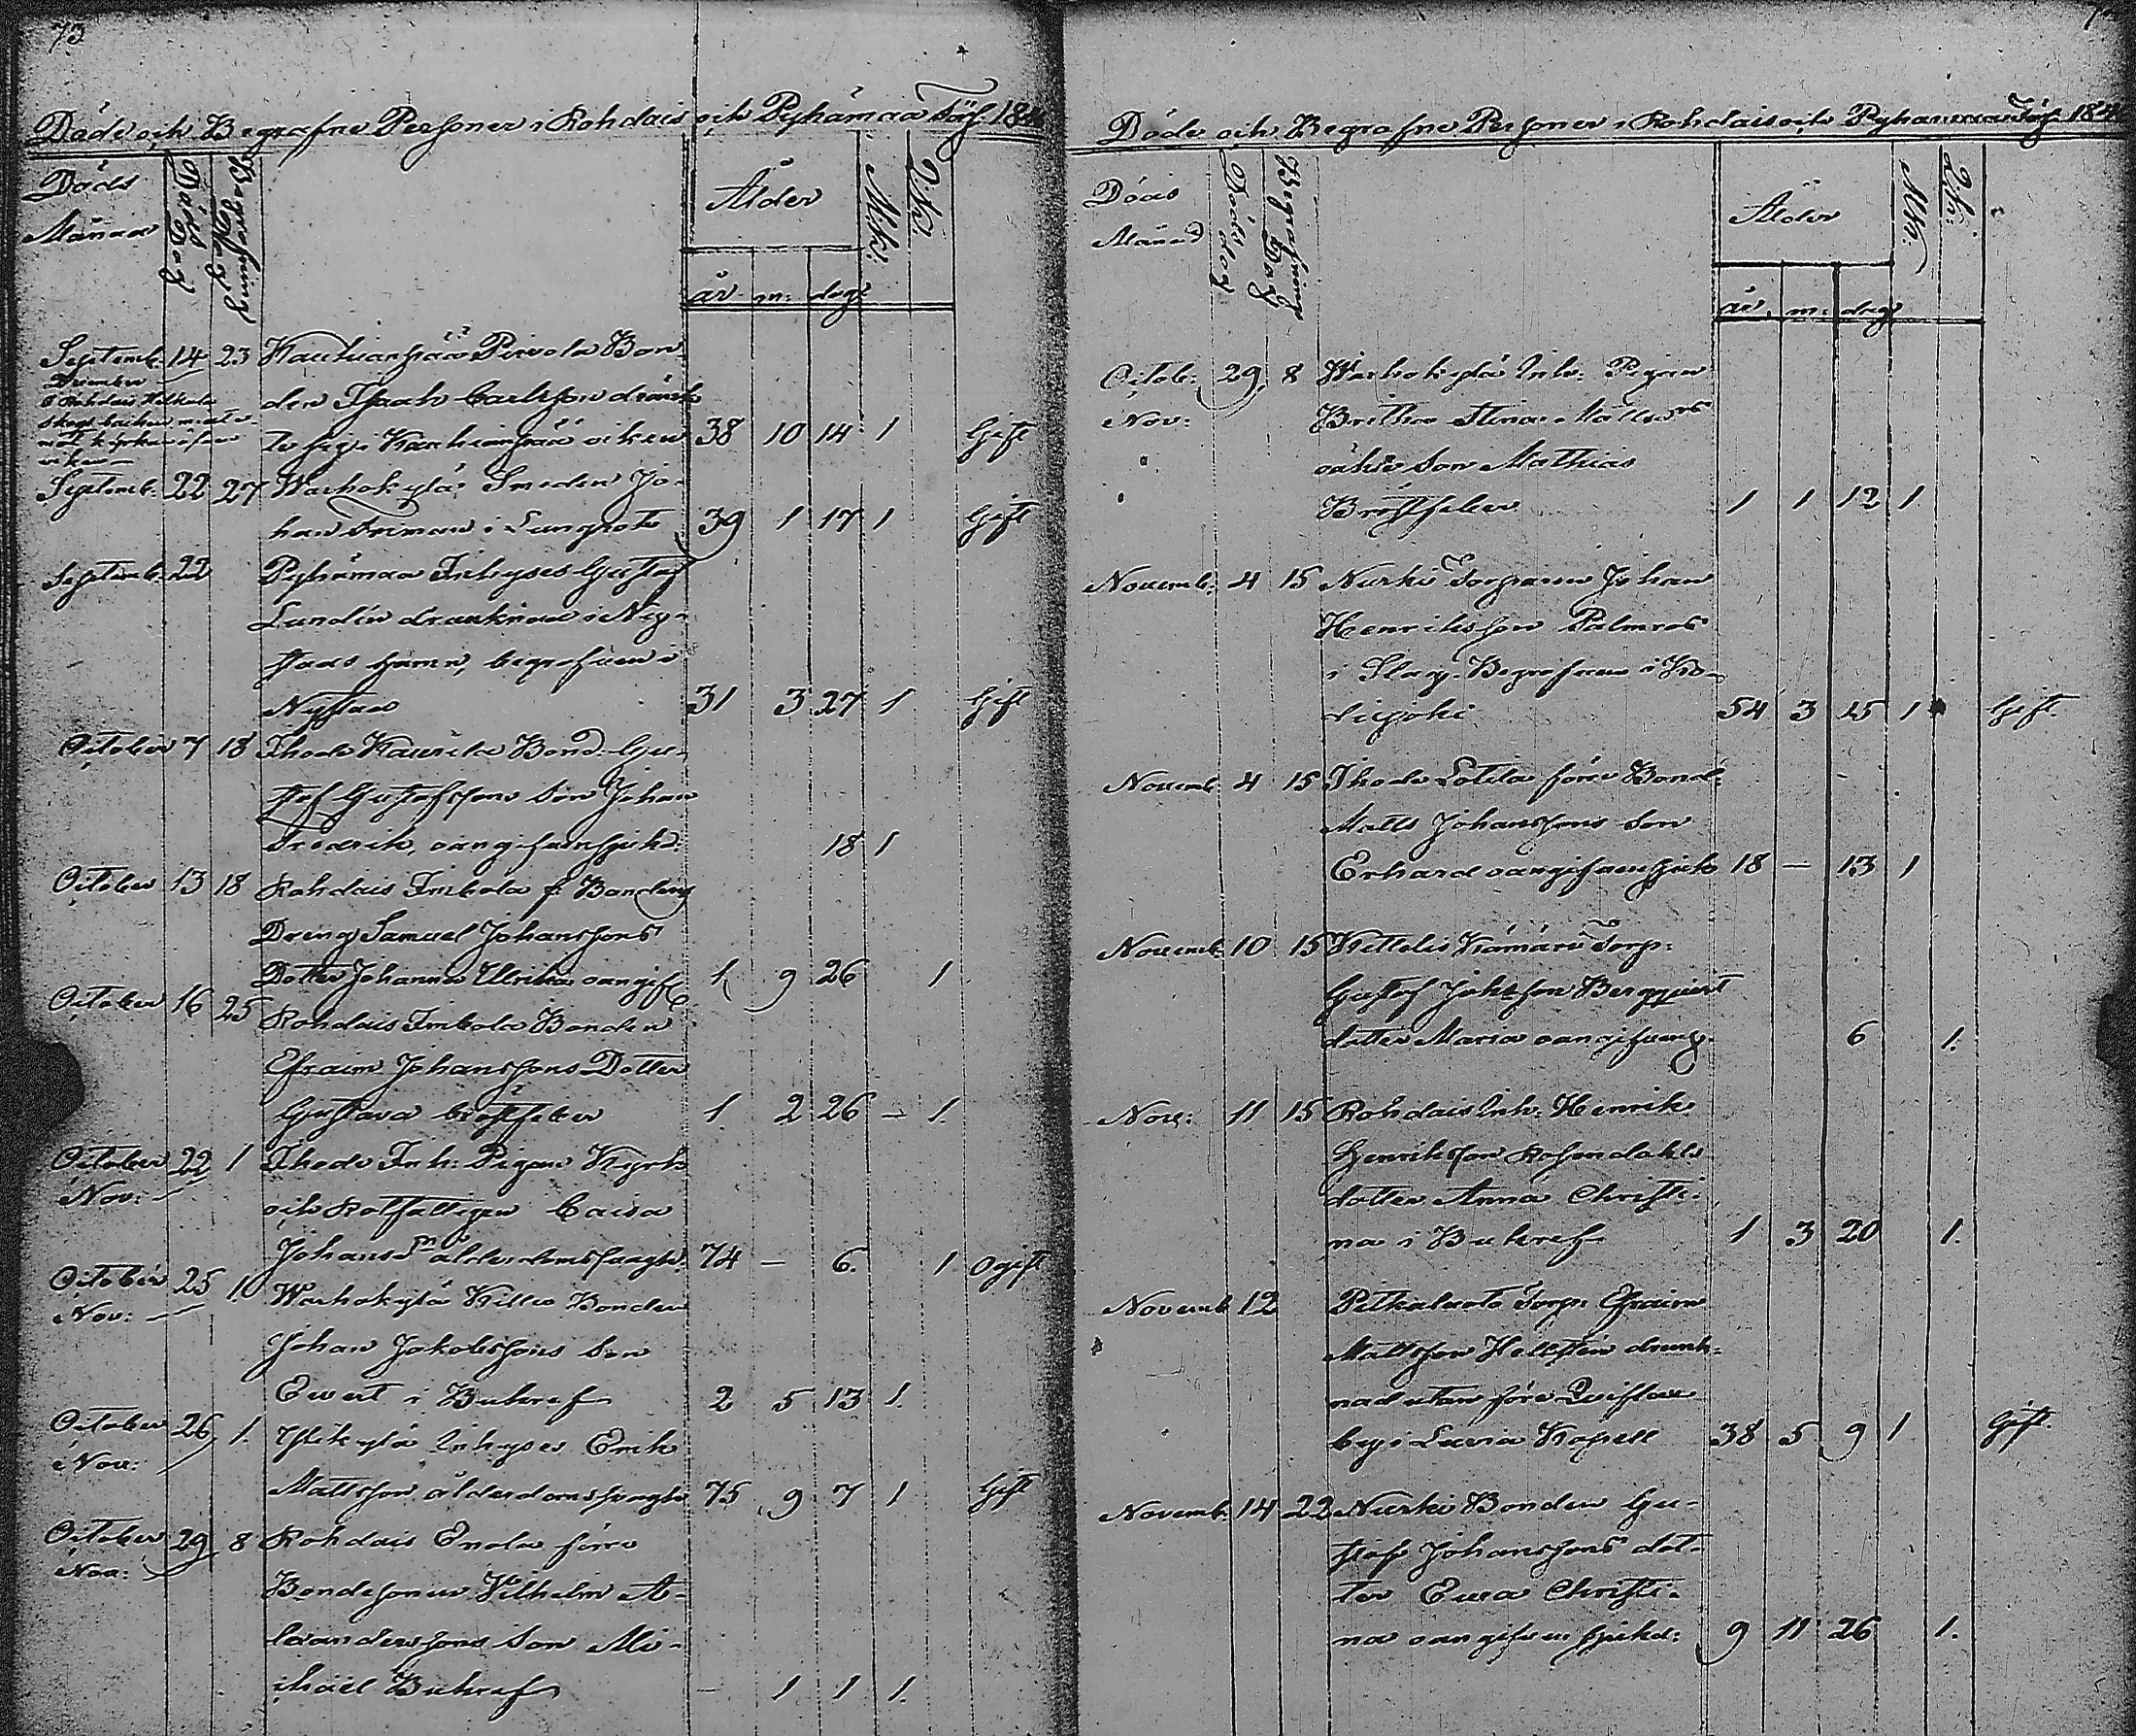 73
Döde och Begrafne Personer i Rohdais och Pyhämaa Förs. 184
Döds Månad
Döds Dag
Begrafning Dag
Ålder
M.K.
Q.K.
år m: dagr
Septemb. 14 23 Kauhianpää Pirvola Bon-
den Isaak Carlsson dränk-
te sig i Kauhianpää viken 38 10 14 1 Gift
Septemb. 22 27 Warhokylä Smeden Jo-
han Friman i Lungsot 39 1 17 1 Gift
Septemb. 22 Pyhämaa Inhyses Gustaf
Lundén drunknad i Ny-
stads hamn, begrafven i
Nystad 31 3 27 1 Gift
October 7 18 Ihode Kaurila Bond. Gu-
staf Gustafssons Son Johan
Fredrik, oangifven sjukd: 18 1
October 13 18 Rohdais Imbola f. Bondens
Dreng Samuel Johanssons
Dotter Johanna Ulrika oangif. 1 9 26 1
October 16 25 Rohdais Imbola Bonden
Efraim Johanssons Dotter
Gustava bröstfeber 1. 2 26 - 1.
October 22 1 Ihode Inh: Pigan Kyrk
Nov:
och Rotfattigen Caisa
Johansdr ålderdomssvaghet. 74 - 6. 1 Ogift
October 25 1. Warhokylä Killa Bonden
Nov:
Johan Jakobssons Son
Evert i Bukref 2 5 13 1.
October 26 1. Ylikylä Inhyses Erik
Nov:
Mattsson ålderdomssvaghet 75 9 7 1 Gift
October 29 8 Rohdais Enola förre
Nov:
Bondesonen Vilhelm A-
lexanderssons Son Mi-
chaël Bukref - 1 1 1.
Döde och Begrafne Personer i Rohdais och Pyhämaa Förs. 184
Döds Månad
Döds dag
Begrafning Dag
Ålder
M.K.
Q.K:
år. m: dagr
Octob: 29 8 Warhokylä Inh: Pigan
Nov:
Britha Stina Mattsdrs
oäkta Son Mathias
Bröstfeber 1 1 12 1.
Novemb: 4 15 Nurkis Torparen Johan
Henriksson Palmros
i Slag. Begrafven i Ko-
disjoki 54 3 15 1 Gift.
Novemb. 4 15 Ihode Lotila förre Bond.
Matts Johanssons Son
Erhard oangifven sjuk 18 - 13 1
Novemb. 10 15 Kettelis Kämäri Torp:
Gustaf Johksson Bergqvist
dotter Maria oangifven sj. 6 1.
Nov: 11 15 Rohdais Inh. Henrik
Henriksson Rosendahls
dotter Anna Christi-
na i Bukref 1 3 20 1.
Novemb. 12 Pitkäluoto Torp: Efraim
Mattsson Hellstén drunk-
nad utan före
beg. i Lavia Kapell 38 5 9 1 Gift.
Novemb. 14 22 Nurkis Bonden Gu-
staf Johanssons dot-
ter Ewa Christi-
na oangifven sjukd: 9 11 26 1.